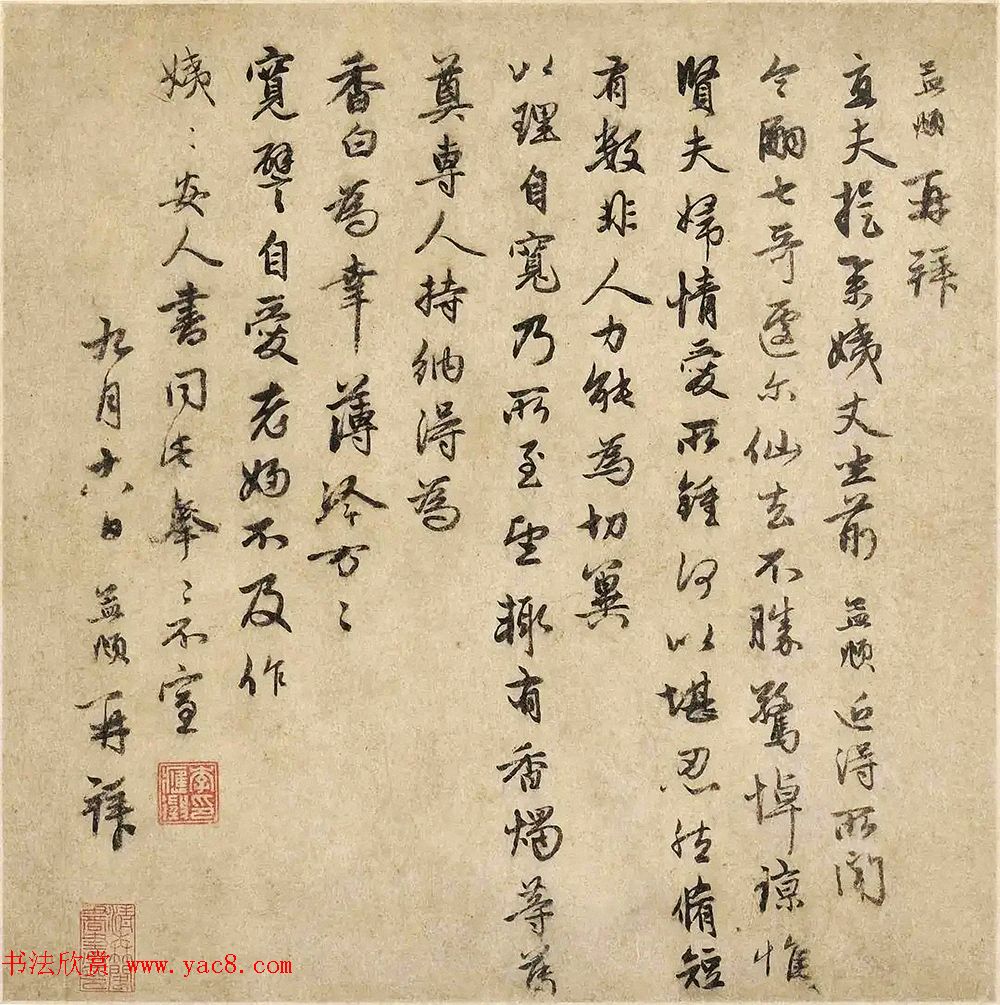 孟頫再拜
直夫提舉姨丈坐前 孟頫近得所聞
令嗣七哥遽尔仙去不勝驚悼諒惟
賢夫婦情愛所鍾何以堪忍然脩短
有數非人力能為切冀
以理自寬乃所至望輒有香燭等為
奠專人持納得為
香白為幸薄冷万々
寬譬自愛老婦不及作
姨々安人書同此拳々不宣
九月十六日 孟頫再拜
书法欣赏 www.yac8.com